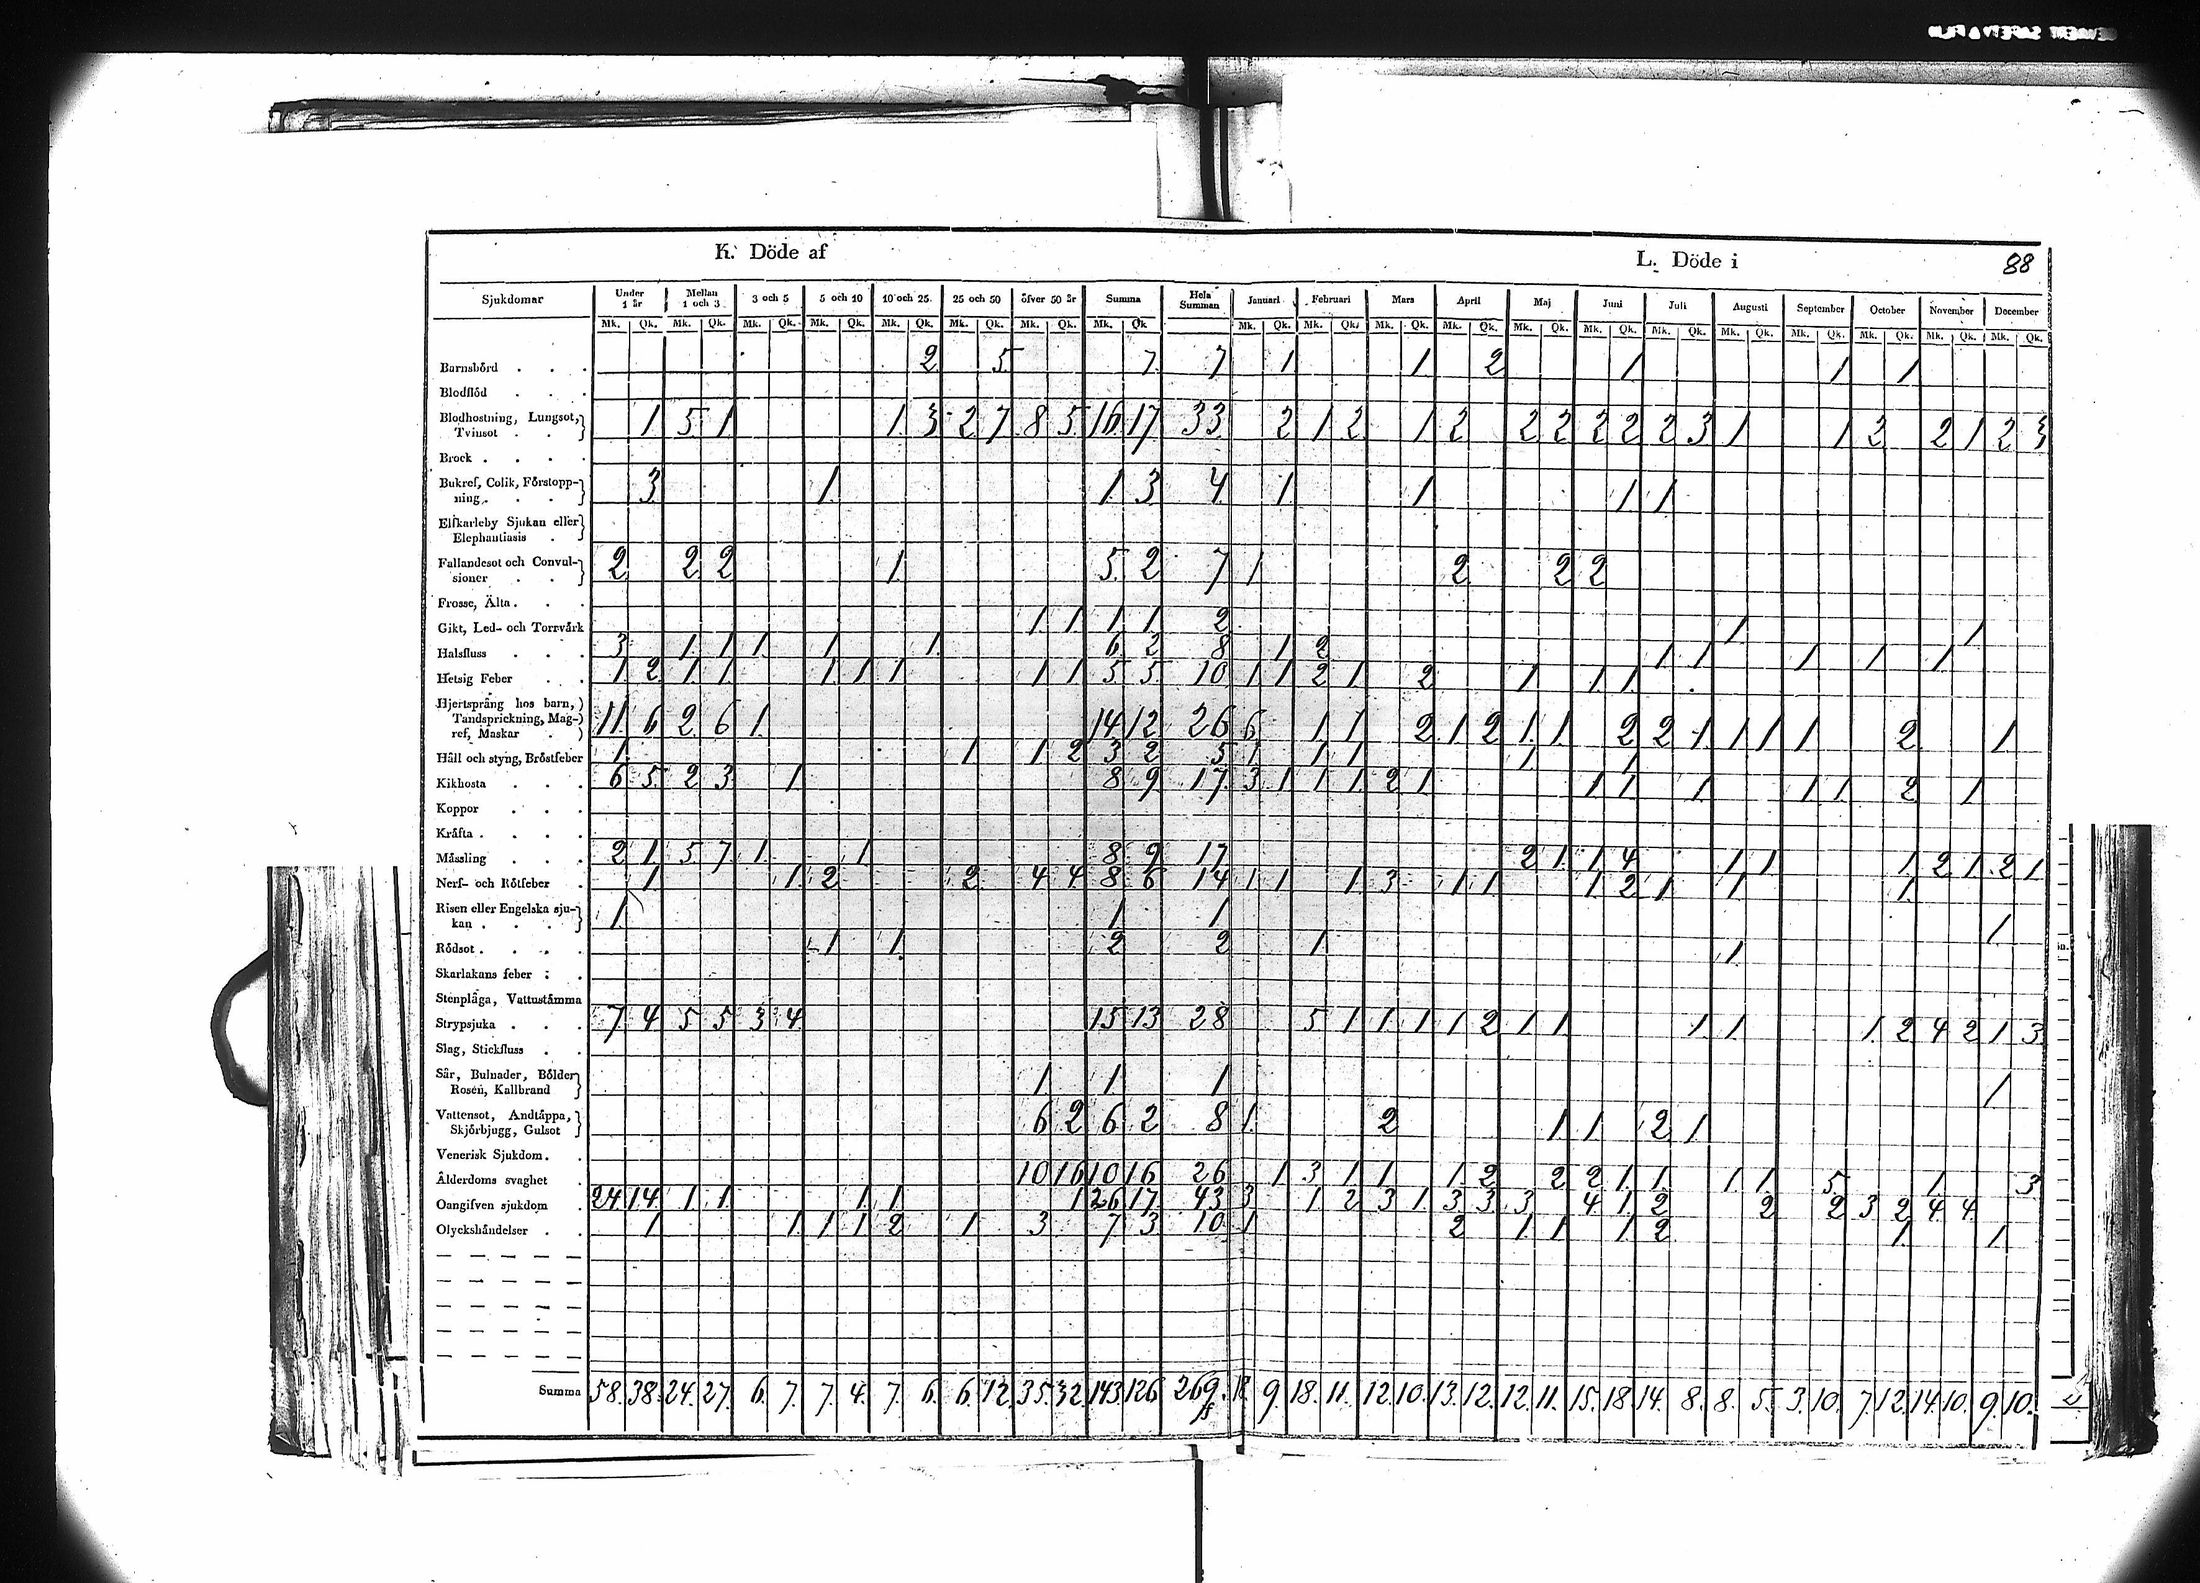 K. Döde af
L. Döde i 88
Sjukdomar Under 1 år Mellan 1 och 3 3 och 5 5 och 10 10 och 25 25 och 50 öfver 50 år Summa Hela Summan Januari Februari Mars April Maj Juni Juli Augusti September October November December
Mk. Qk. Mk. Qk. Mk. Qk. Mk. Qk. Mk. Qk. Mk. Qk. Mk. Qk. Mk. Qk Mk. Qk. Mk. Qk. Mk. Qk. Mk. Qk. Mk. Qk. Mk. Qk. Mk. Qk. Mk. Qk. Mk. Qk. Mk. Qk. Mk. Qk. Mk. Qk.
Barnsbörd . . . 2 5 7 7 1 1 2 1 1 1
Blodflöd . . .
Blodhostning, Lungsot,
Tvinsot . . } 1 5 1 1 3 2 7 8 5 16 17 33 2 1 2 1 2 2 2 2 2 2 3 1 1 2 2 1 2 3
Brock . . . .
Bukref, Colik, Förstopp-
ning . . . } 3 1 1 3 4 1 1 1 1
Elfkarleby Sjukan eller
Elephantiasis . }
Fallandesot och Convul-
sioner . . } 2 2 2 1 5 2 7 1 2 2 2
Frosse, Älta . . .
Gikt, Led- och Torrvärk 1 1 1 1 2 1 1
Halsfluss . . . 3 1 1 1 1 1 6 2 8 1 2 1 1 1 1 1
Hetsig Feber . . 1 2 1 1 1 1 1 1 1 5 5 10 1 1 2 1 2 1 1 1
Hjertsprång hos barn,
Tandsprickning, Mag-
ref, Maskar . ) 11 6 2 6 1 14 12 26 6 1 1 2 1 2 1 1 2 2 1 1 1 1 2 1
Håll och styng, Bröstfeber 1 1 1 2 3 2 5 1 1 1 1 1
Kikhosta . . . 6 5 2 3 1 8 9 17 3 1 1 1 2 1 1 1 1 1 1 2 1
Koppor . . .
Kräfta . . . .
Mässling . . . 2 1 5 7 1 1 8 9 17 2 1 1 4 1 1 1 2 1 2 1
Nerf- och Rötfeber . 1 1 2 2 4 4 8 6 14 1 1 1 3 1 1 1 2 1 1 1
Risen eller Engelska sju-
kan . . . . } 1 1 1 1
Rödsot . . . . 1 1 2 2 1 1
Skarlakans feber . .
Stenplåga, Vattustämma
Strypsjuka . . . 7 4 5 5 3 4 15 13 28 5 1 1 1 1 2 1 1 1 1 1 2 4 2 1 3
Slag, Stickfluss . .
Sår, Bulnader, Bölder
Rosen, Kallbrand } 1 1 1 1
Vattensot, Andtäppa,
Skjörbjugg, Gulsot } 6 2 6 2 8 1 2 1 1 2 1
Venerisk Sjukdom . .
Ålderdoms svaghet . 10 16 10 16 26 1 3 1 1 1 2 2 2 1 1 1 1 5 1 3
Oangifven sjukdom . 24 14 1 1 1 1 1 26 17 43 3 1 2 3 1 3 3 3 4 1 2 2 2 3 2 4 4
Olyckshändelser . . 1 1 1 1 2 1 3 7 3 10 1 2 1 1 1 2 1 1
Summa 58. 38. 24. 27. 6. 7. 7. 4. 7. 6. 6. 12. 35. 32. 143. 126 269. 18 9. 18. 11. 12. 10. 13. 12. 12. 11. 15. 18. 14. 8. 8. 5. 3. 10. 7. 12. 14. 10. 9. 10.